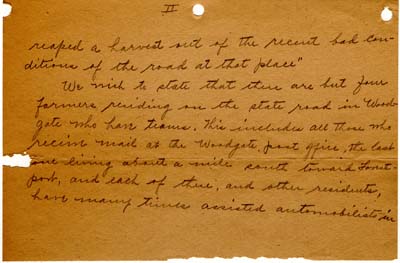 II
reaped a harvest out of the recent bad con-
ditions of the road at that place"
We wish to state that there are but four
farmers residing on the state road in Wood-
gate who have teams. This includes all those who
receive mail at the Woodgate post office, the last
one living about a mile south toward Forest-
port, and each of these, and other residents,
have many times assisted automobilists in